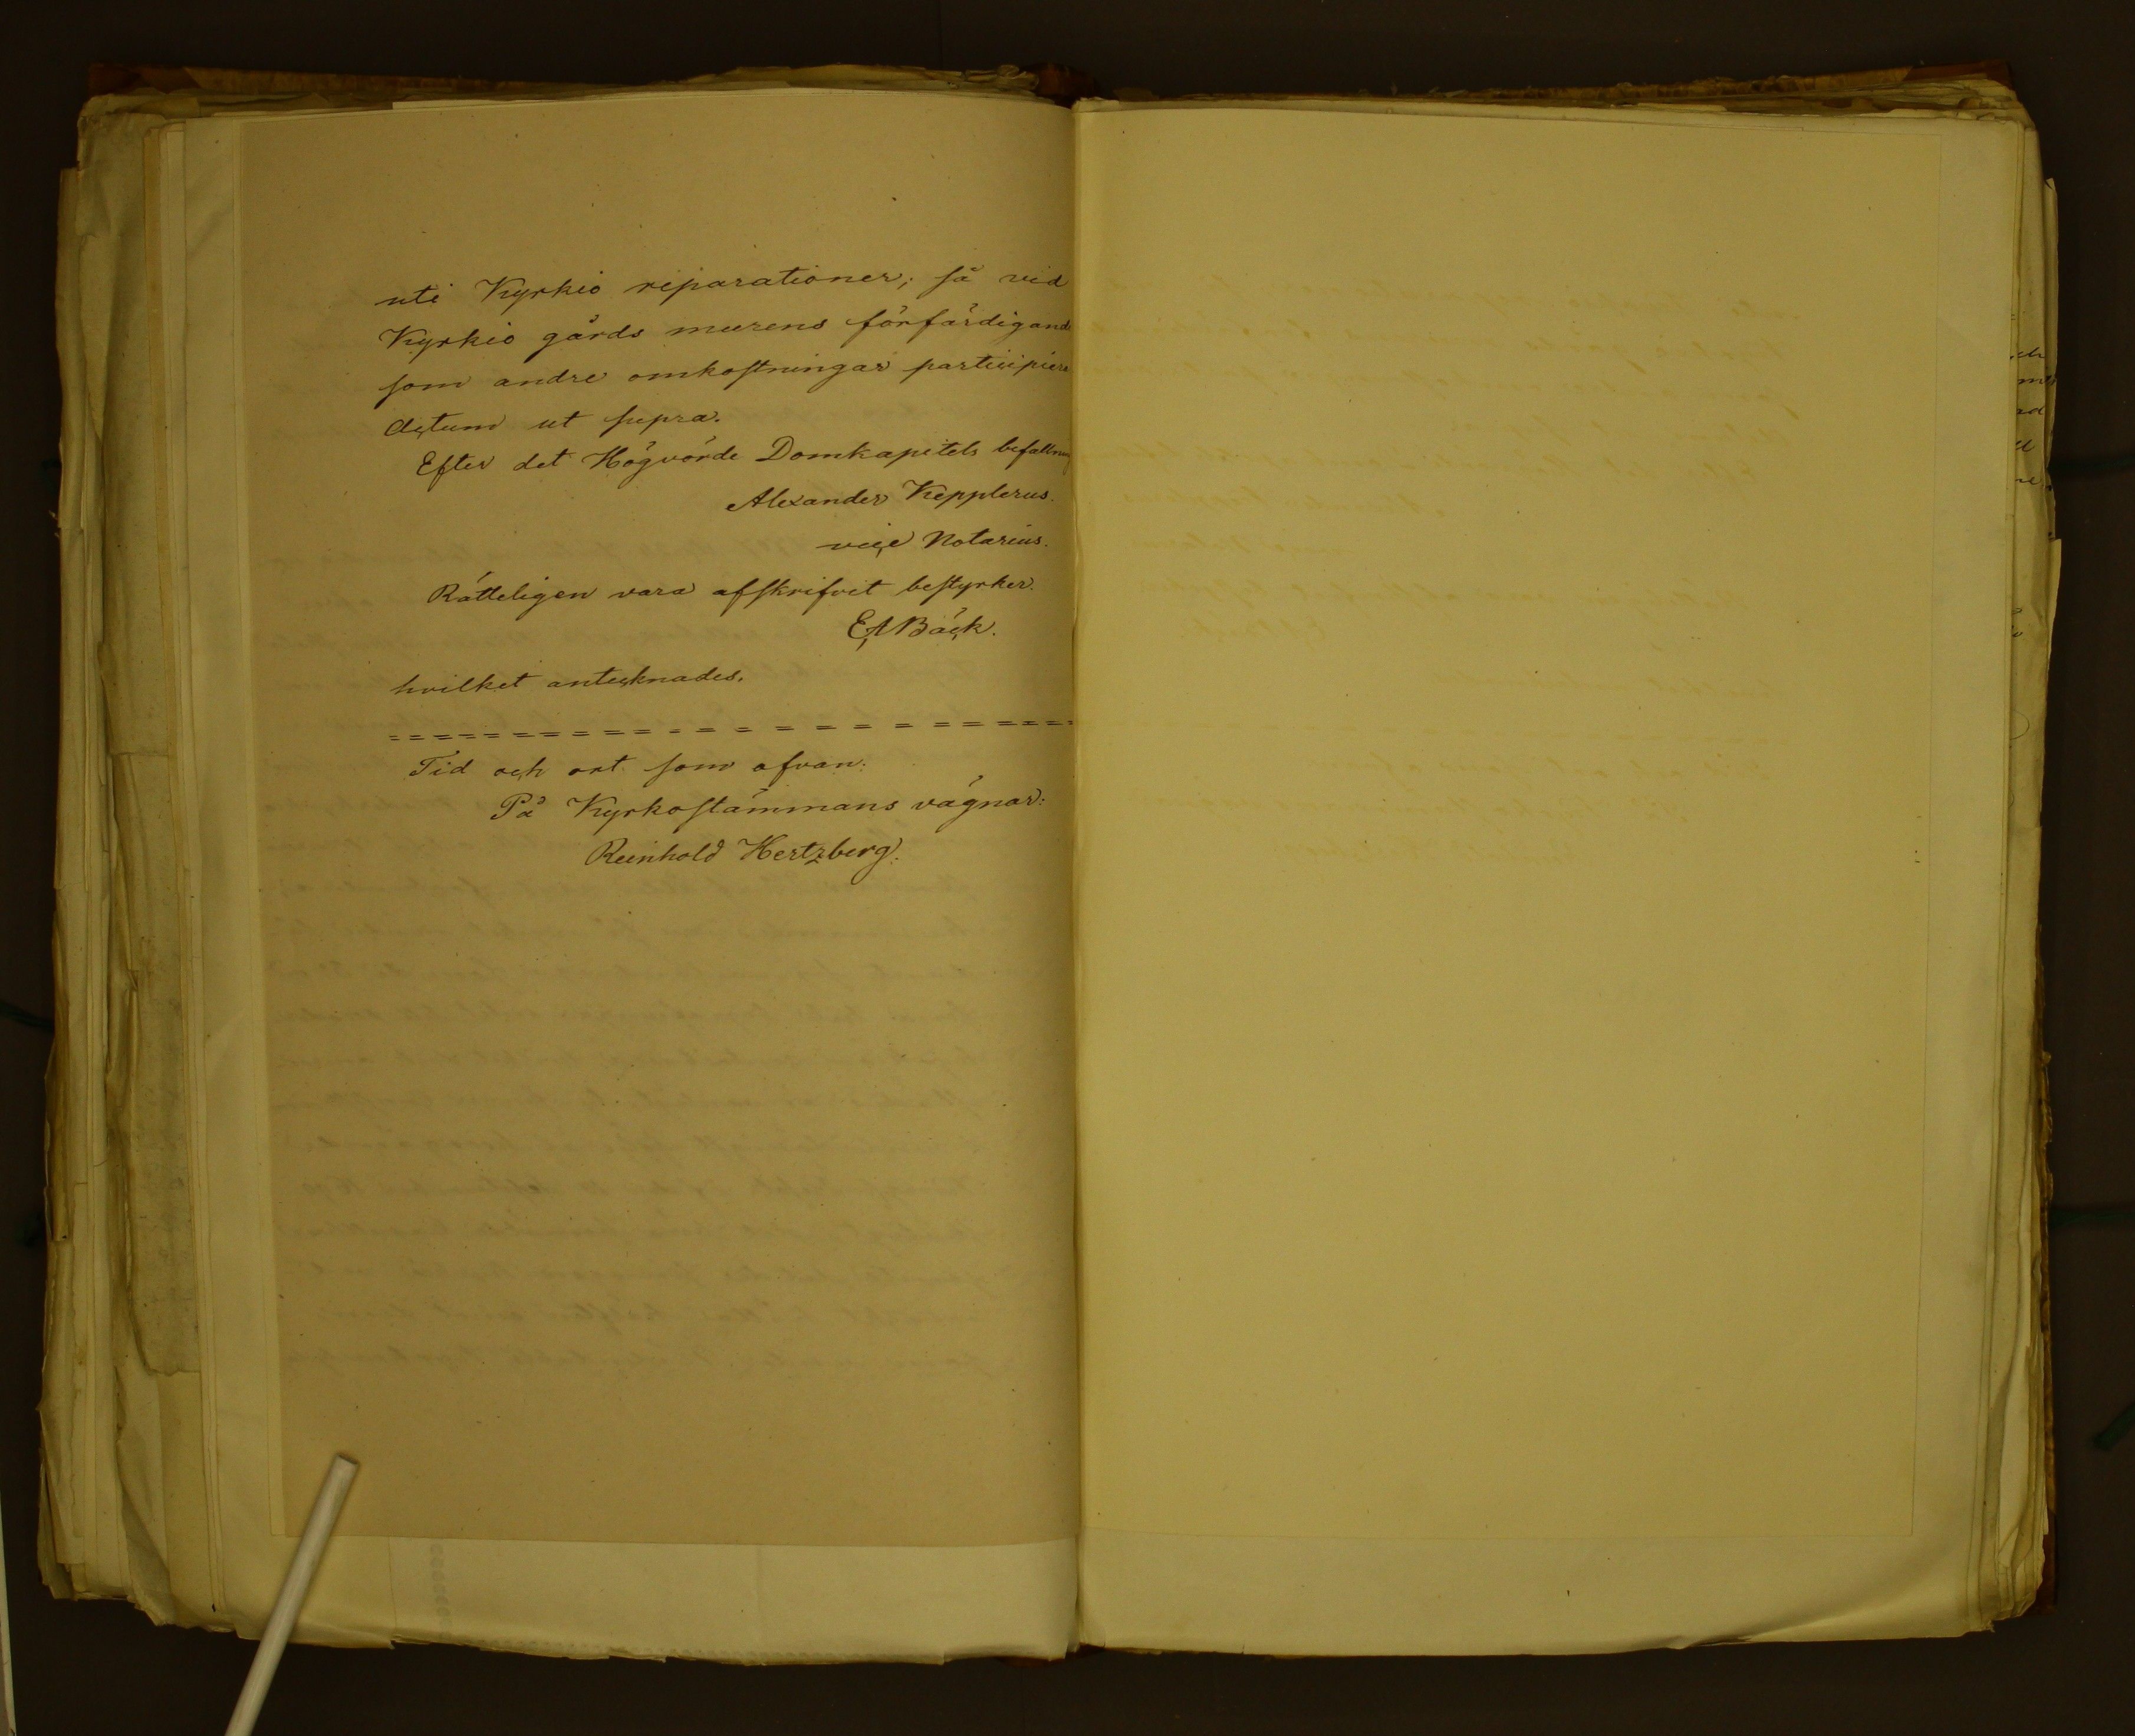 uti Kyrkio reparationer; så vid
Kyrkio gårds murens förfärdigand
som andre omkostningar participiera
Actum ut supra.
Efter det Högvörde Domkapitels befallning
Alexander Kepplerus.
vice Notarius.
Rätteligen vara afskrifvit bestyrker.
EABäck.
hvilket antecknades.
Tid och ort som ofvan:
På Kyrkostämmans vägnar:
Reinhold Hertzberg.